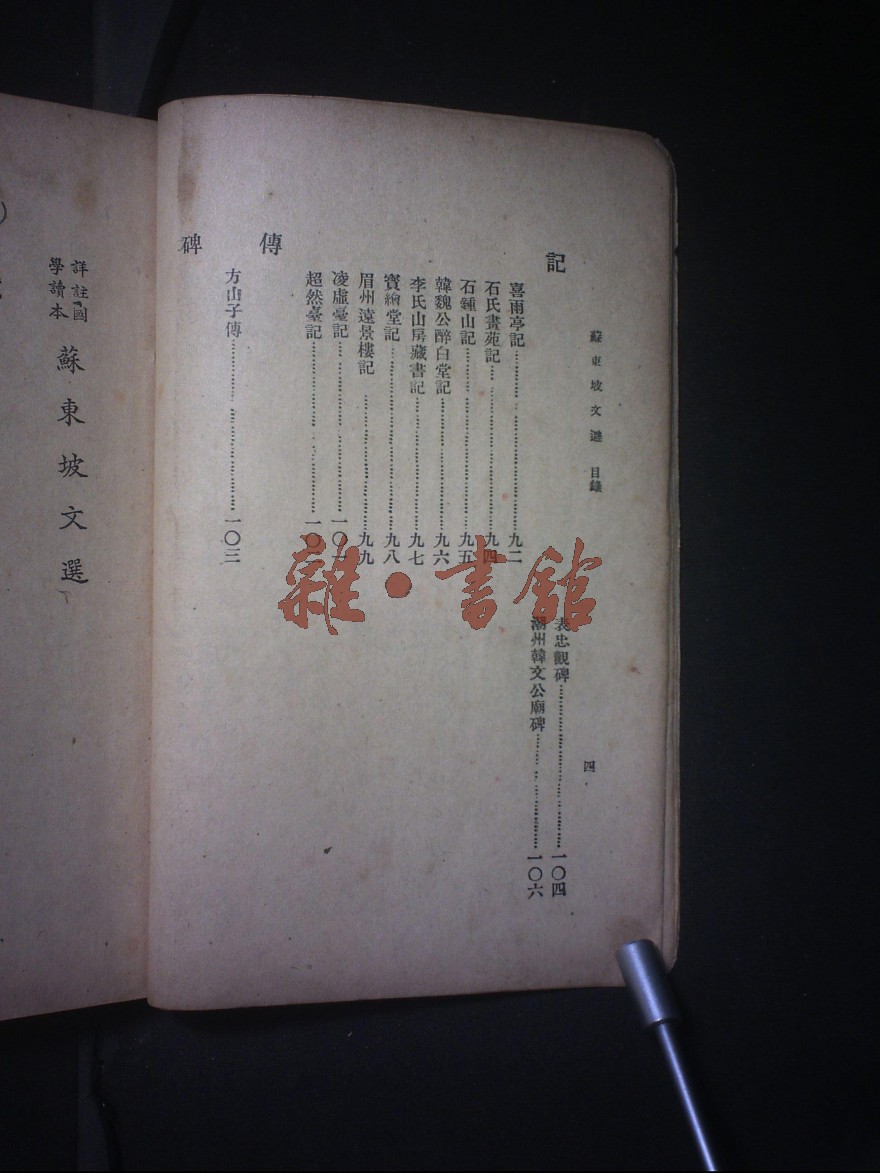 蘇東坡文選 目錄 四
記
喜雨亭記……九二
石氏畫苑記……九四
石鍾山記……九五
韓魏公醉白堂記……九六
李氏山房藏書記……九七
寶繪堂記……九八
眉州遠景樓記……九九
凌虛臺記……一〇一
超然臺記……一〇
傳
方山子傳……一〇三
碑
表忠觀碑……一〇四
潮州韓文公廟碑……一〇六
詳註國
學讀本
蘇東坡文選
雜·書館